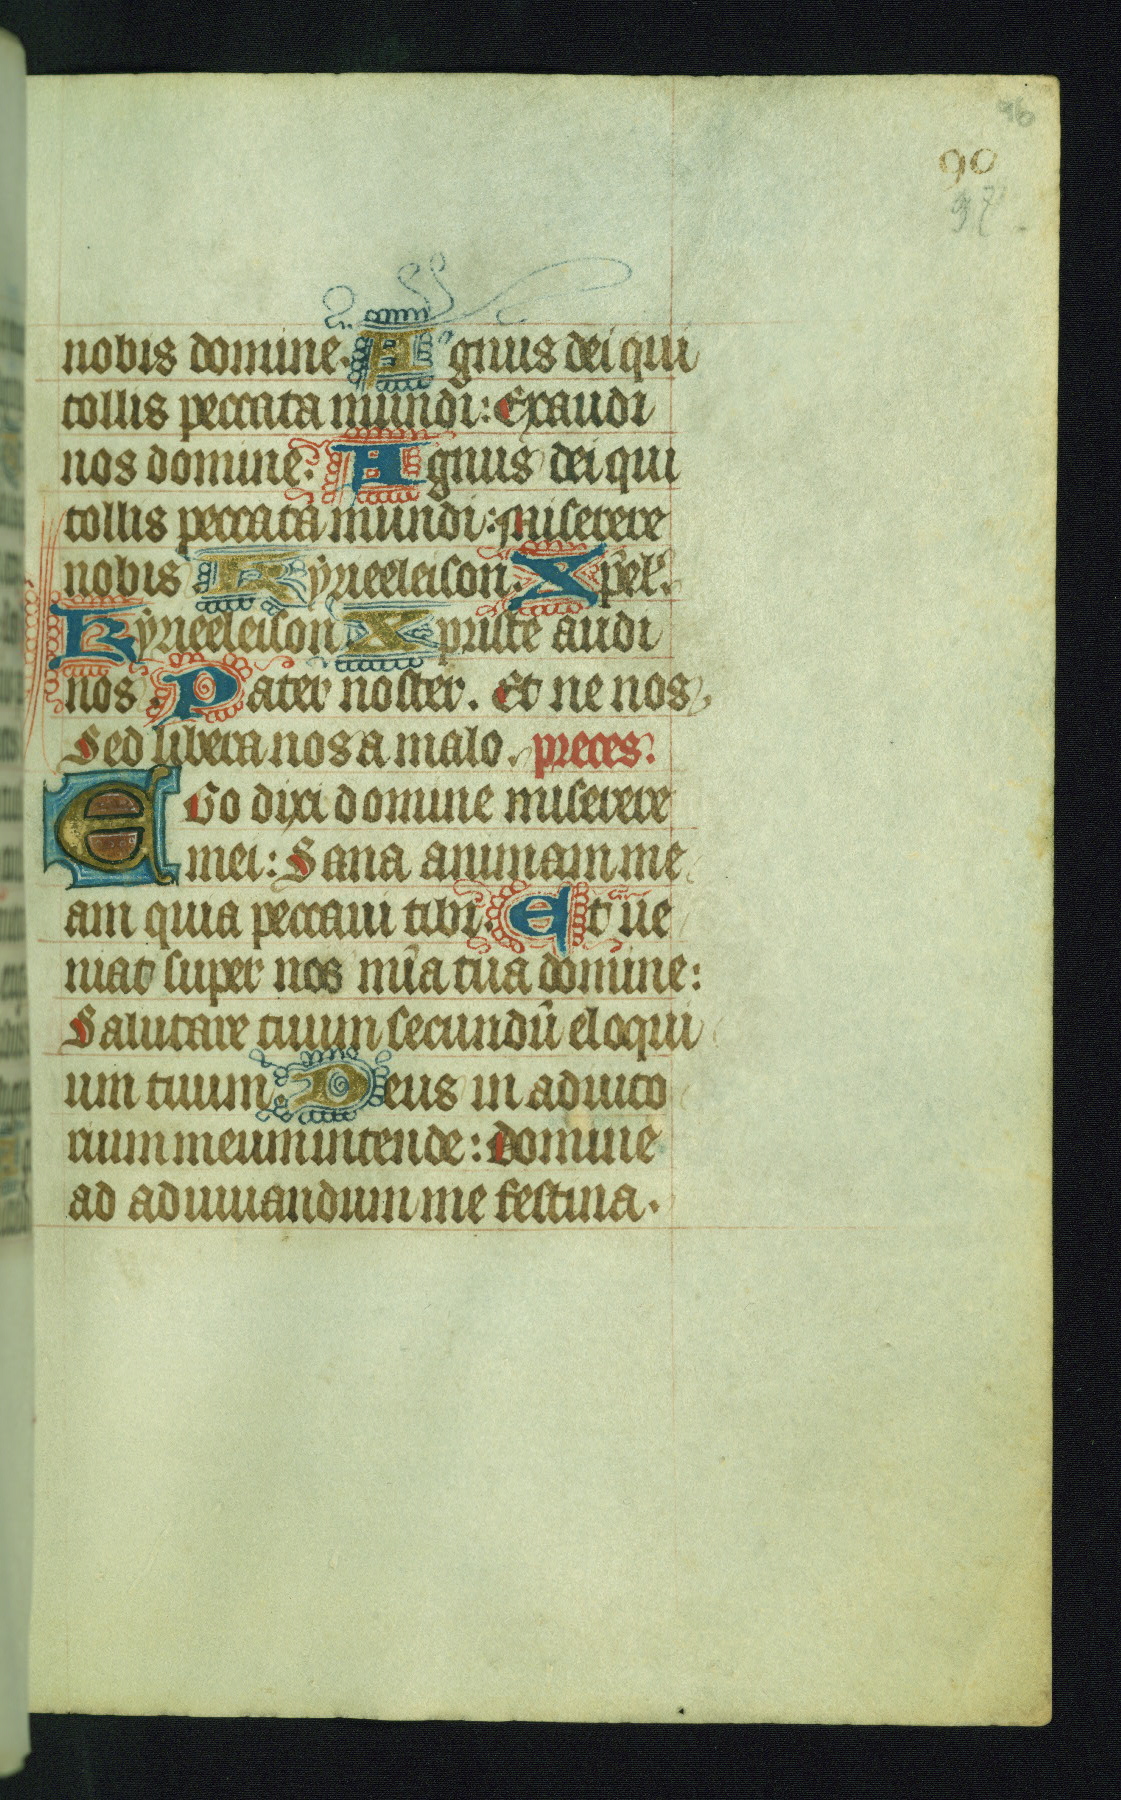 96
90
97.
nobis domine. Agnus dei qui
tollis peccata mundi: Exaudi
nos domine. Agnus dei qui
tollis peccata mundi: Miserere
nobis Kyrieeleison. Xp̄el'.
Kyrieeleison Xpriste audi
nos. Pater noster. Et ne nos
Sed libera nos a malo. preces.
EGo dixi domine miserere
mei: Sana animam me
am quia peccaui tibi. Et ue
niat super nos mīa tua domine:
Salutare tuum secundū eloqui
um tuum. Deus in adiuto
rium meum intende: Domine
ad adiuuandum me festina.